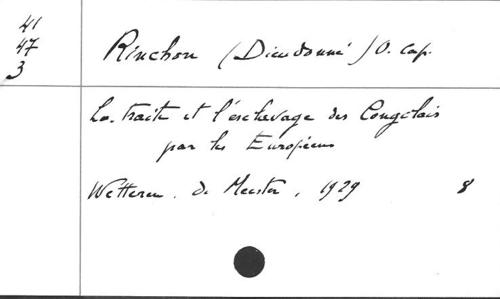 41
47
3
Rinchon (Dieudonné) O. Cap.
La traite et l'esclavage des Congolais
par les Européens
Wetteren. de Meester, 1929 8